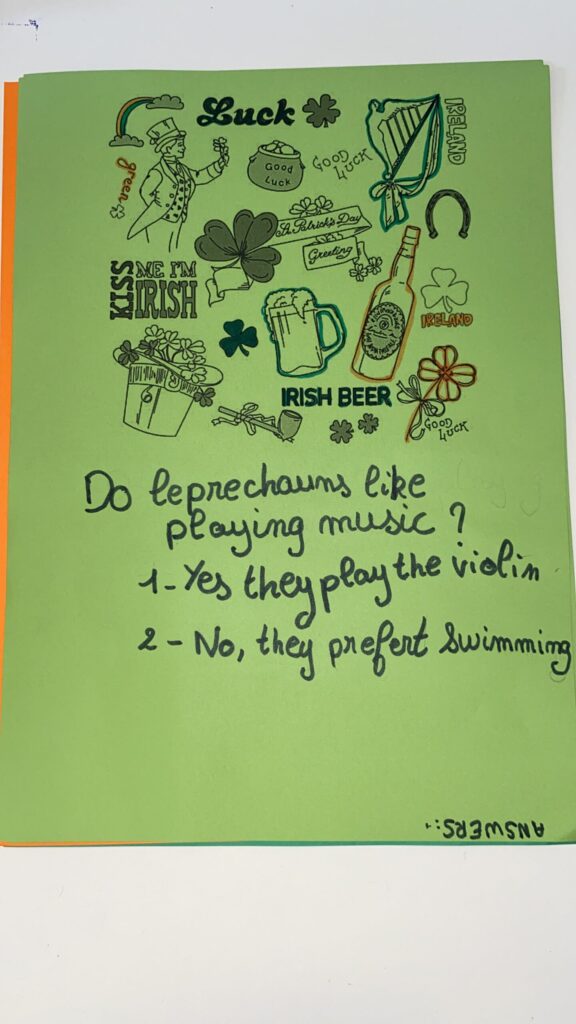 Luck
IRELAND
green
Good
Luck
GOOD
LUCK
St. Patrick's Day
Greeting
KISS
ME I'M
IRISH
IRELAND
IRISH BEER
GOOD
LUCK
Do leprechauns like
playing music ?
1 - Yes they play the violin
2 - No, they prefert swimming
ANSWERS: